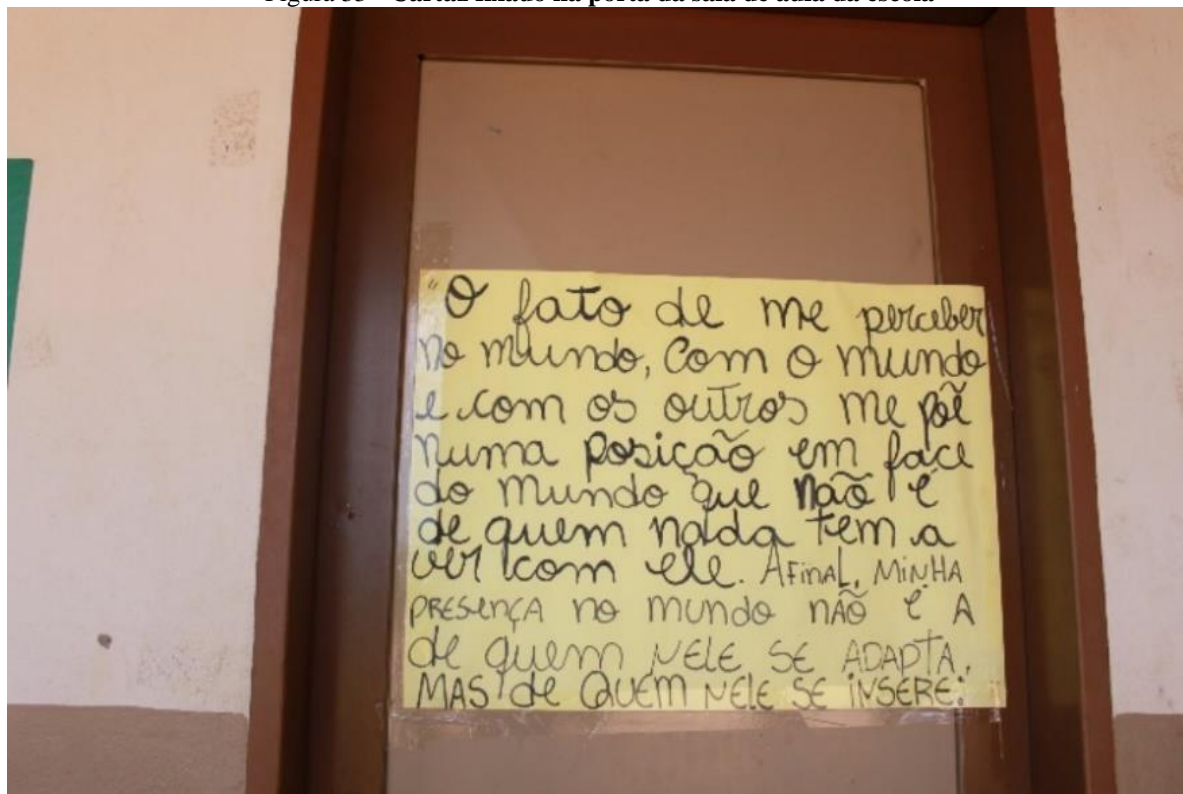 Figura 35 – Cartaz fixado na porta da sala de aula da escola
"O fato de me perceber
no mundo, com o mundo
e com os outros me põe
numa posição em face
do mundo que não é
de quem nada tem a
ver com ele. AFINAL, MINHA
PRESENÇA NO MUNDO NÃO É A
de quem NELE SE ADAPTA,
MAS de QUEM NELE SE INSERE."